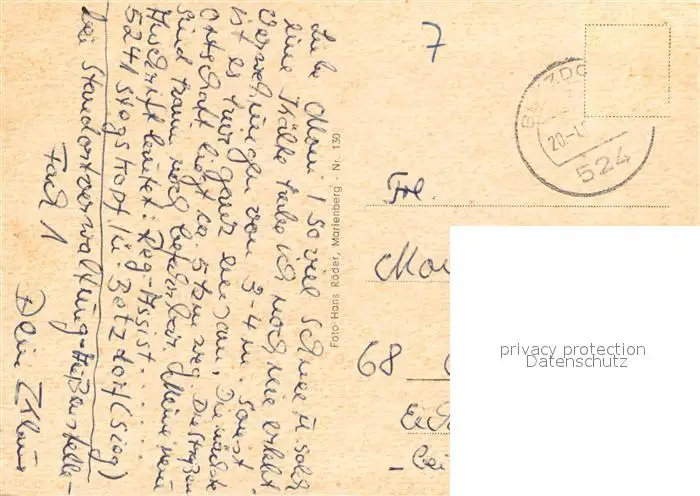 Liebe Moni! So viel Schnee u. solch
eine Kälte habe ich noch nie erlebt.
Verwehungen von 3-4 m. Sonst
ist es hier ganz einsam. Die nächste
Ortschaft liegt ca. 5 km weg. Die Straßen
sind kaum noch befahrbar. Meine neue
Anschrift lautet: Reg.-Assist. .....
5241 Stegskopf ü. Betzdorf (Sieg)
bei Standortverwaltung-Außenstelle-
Fach 1
Dein Klaus
Foto Hans Röder, Marienberg · Nr. 130
7
20-1
524
Frl.
68
privacy protection
Datenschutz